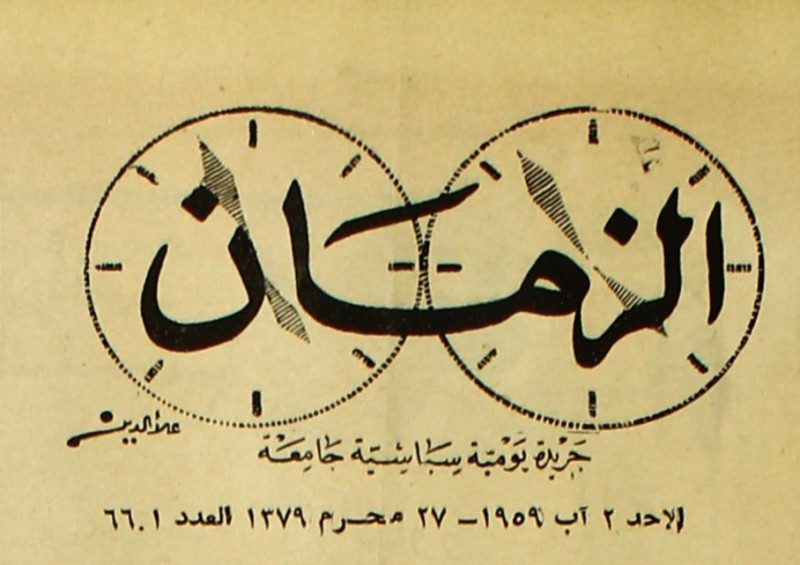 الزمان
علاءالدين
جَرْيدة يَوْميّة سيَاسْيّة جَامِعَة
الاحد ٢ آب ١٩٥٩ – ٢٧ محرم ١٣٧٩ العدد ٦٦٠١